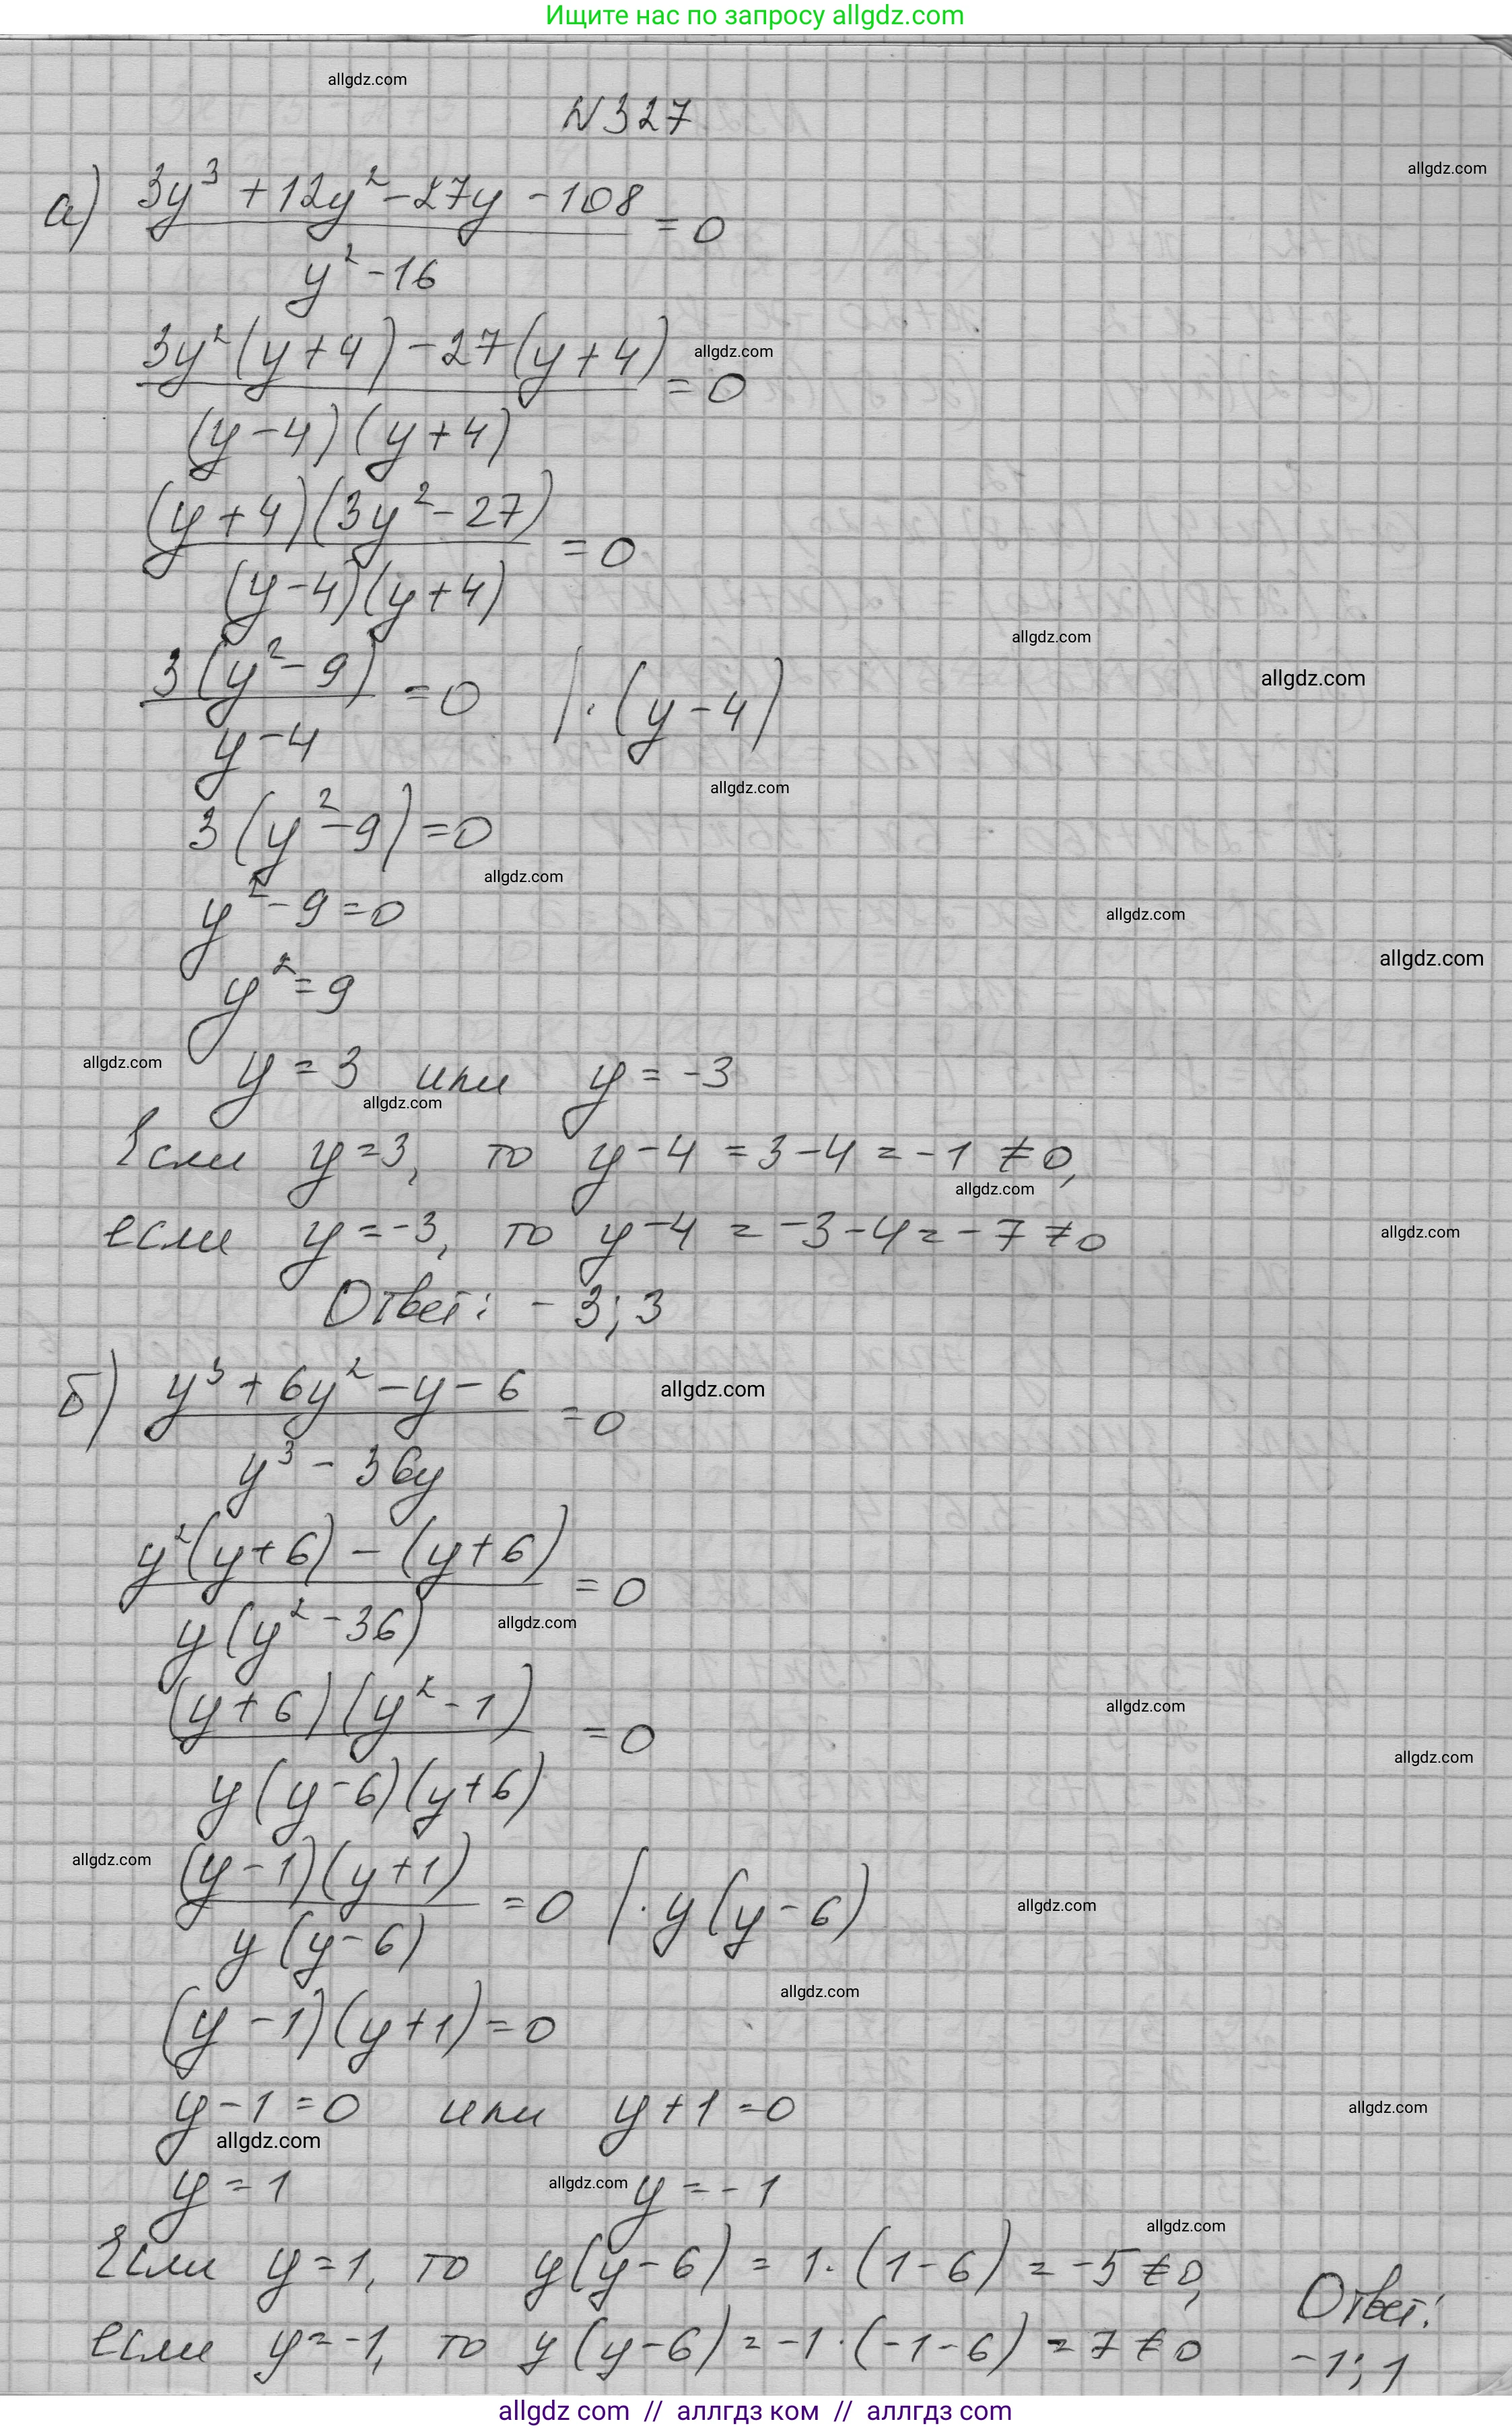 Ищите нас по запросу allgdz.com
allgdz.com
N327
allgdz.com
а) (3y³ + 12y² - 27y - 108)/(y² - 16) = 0
(3y²(y+4) - 27(y+4))/((y-4)(y+4)) = 0
allgdz.com
((y+4)(3y² - 27))/((y-4)(y+4)) = 0
allgdz.com
allgdz.com
(3(y² - 9))/(y-4) = 0 | · (y-4)
allgdz.com
3(y² - 9) = 0
allgdz.com
y² - 9 = 0
allgdz.com
allgdz.com
y² = 9
allgdz.com
y = 3 или y = -3
allgdz.com
Если y = 3, то y - 4 = 3 - 4 = -1 ≠ 0,
allgdz.com
если y = -3, то y - 4 = -3 - 4 = -7 ≠ 0
allgdz.com
Ответ: -3; 3
б) (y³ + 6y² - y - 6)/(y³ - 36y) = 0
allgdz.com
(y²(y+6) - (y+6))/(y(y² - 36)) = 0
allgdz.com
((y+6)(y² - 1))/(y(y-6)(y+6)) = 0
allgdz.com
allgdz.com
allgdz.com
((y-1)(y+1))/(y(y-6)) = 0 | · y(y-6)
allgdz.com
allgdz.com
(y-1)(y+1) = 0
y - 1 = 0 или y + 1 = 0
allgdz.com
allgdz.com
y = 1 y = -1
allgdz.com
allgdz.com
Если y = 1, то y(y-6) = 1 · (1-6) = -5 ≠ 0,
если y = -1, то y(y-6) = -1 · (-1-6) = 7 ≠ 0
Ответ:
-1; 1
allgdz com // аллгдз ком // аллгдз com